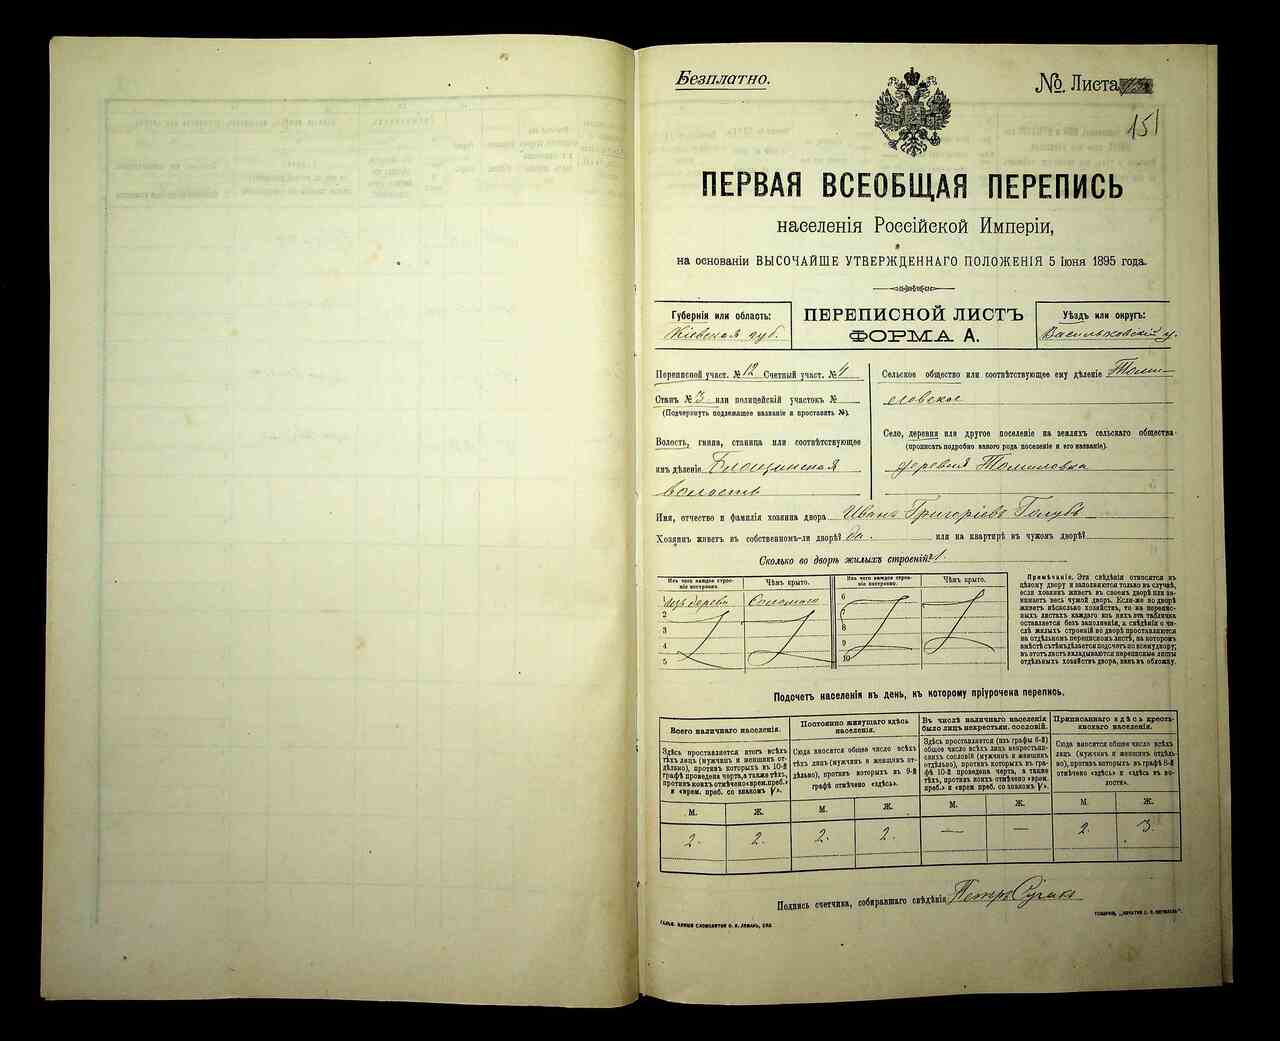 Безплатно.
№ Листа
151
ПЕРВАЯ ВСЕОБЩАЯ ПЕРЕПИСЬ
населенія Россійской Имперіи,
на основаніи ВЫСОЧАЙШЕ УТВЕРЖДЕННАГО ПОЛОЖЕНІЯ 5 Іюня 1895 года.
Губернія или область:
Кіевская губ.
ПЕРЕПИСНОЙ ЛИСТЪ
ФОРМА А.
Уѣздъ или округъ:
Васильковскій у.
Переписной участ. № 12 Счетный участ. № 4
Станъ № 3 или полицейскій участокъ №
(Подчеркнуть подлежащее названіе и проставить №).
Волость, гмина, станица или соотвѣтствующее
имъ дѣленіе Блощинская
волость
Сельское общество или соотвѣтствующее ему дѣленіе Томи-
ловское
Село, деревня или другое поселеніе на земляхъ сельскаго общества
(прописать подробно какого рода поселеніе и его названіе).
деревня Томиловка
Имя, отчество и фамилія хозяина двора Иванъ Григоріевъ Голубъ
Хозяинъ живетъ въ собственномъ-ли дворѣ? да. или на квартирѣ въ чужомъ дворѣ?
Сколько во дворѣ жилыхъ строеній? 1.
Изъ чего каждое строе-
ніе построено.
Чѣмъ крыто.
Изъ чего каждое строе-
ніе построено.
Чѣмъ крыто.
изъ дерева Соломою
2
3
4
5
6
7
8
9
10
Примѣчаніе. Эта свѣдѣнія относятся къ
цѣлому двору и заполняются только въ случаѣ,
если хозяинъ живетъ въ своемъ дворѣ или за-
нимаетъ весь чужой дворъ. Если-же во дворѣ
живетъ нѣсколько хозяйствъ, то на перепис-
ныхъ листахъ каждаго изъ нихъ эта табличка
оставляется безъ заполненія, а свѣдѣнія о чи-
слѣ жилыхъ строеній во дворѣ проставляются
на отдѣльномъ переписномъ листѣ, на которомъ
вмѣстѣ съ тѣмъ дѣлается подсчетъ по всему двору;
въ этотъ листъ вкладываются переписные листы
отдѣльныхъ хозяйствъ двора, какъ въ обложку.
Подсчетъ населенія въ день, къ которому пріурочена перепись.
Всего наличнаго населенія.
Здѣсь проставляется итогъ всѣхъ
тѣхъ лицъ (мужчинъ и женщинъ от-
дѣльно), противъ которыхъ въ 10-й
графѣ проведена черта, а также тѣхъ,
противъ коихъ отмѣчено «врем. преб.»
и «врем. преб. со знакомъ V».
Постоянно живущаго здѣсь
населенія.
Сюда вносится общее число всѣхъ
тѣхъ лицъ (мужчинъ и женщинъ от-
дѣльно), противъ которыхъ въ 9-й
графѣ отмѣчено «здѣсь».
Въ числѣ наличнаго населенія
было лицъ некрестьян. сословій.
Здѣсь проставляется (изъ графы 6-й)
общее число всѣхъ лицъ некрестьян-
скихъ сословій (мужчинъ и женщинъ
отдѣльно), противъ которыхъ въ гра-
фѣ 10-й проведена черта, а также
тѣхъ, противъ коихъ отмѣчено «врем.
преб.» и «врем. преб. со знакомъ V».
Приписаннаго здѣсь кресть-
янскаго населенія.
Сюда вносится общее число всѣхъ
лицъ (мужчинъ и женщинъ отдѣль-
но), противъ которыхъ въ графѣ 8-й
отмѣчено «здѣсь» и «здѣсь въ во-
лости».
М. Ж. М. Ж. М. Ж. М. Ж.
2. 2. 2. 2. — — 2. 3.
Подпись счетчика, собиравшаго свѣдѣнія Петръ